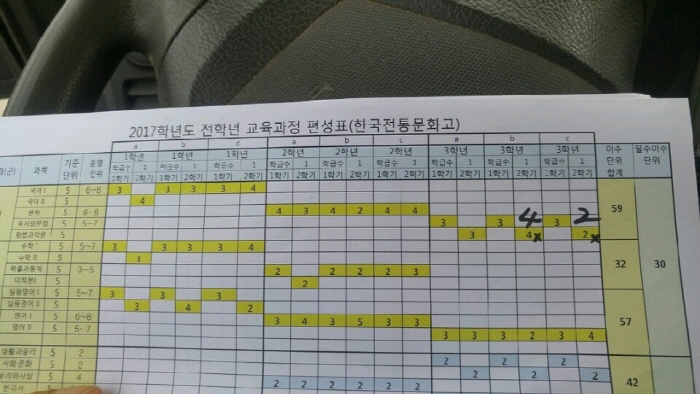 2017학년도 전학년 교육과정 편성표(한국전통문화고)
a b c a b c a b c
과목 기준 운영 1학년 1학년 1학년 2학년 2학년 2학년 3학년 3학년 3학년 이수 필수이수
단위 단위 학급수 1 학급수 1 학급수 1 학급수 1 학급수 1 학급수 1 학급수 1 학급수 1 학급수 1 단위 단위
1학기 2학기 1학기 2학기 1학기 2학기 1학기 2학기 1학기 2학기 1학기 2학기 1학기 2학기 1학기 2학기 1학기 2학기 합계
국어 I 5 6~8 3 3 3 3 4
국어 II 5 4
문학 5 6~8 4 3 4 2 4 4 59
독서와문법 5 5~7 3 3 4 3 2
화법과작문 5 3 4 x 2 x
수학 I 5 5~7 3 3 3 3 4
수학 II 5 3
확률과통계 5 3~5 2 2 2 2 3 32 30
미적분I 5 2
실용영어 I 5 5~7 3 3 3
실용영어 II 5 3 4 2
영어 I 5 6~8 3 4 3 5 3 3 57
영어 II 5 5~7 3 3 3 2 3 4
생활과윤리 5 2
사회문화 5 2 2 2 2
윤리와사상 5 4 2 2 2 42
한국사 5 2 2 2 2 2 2